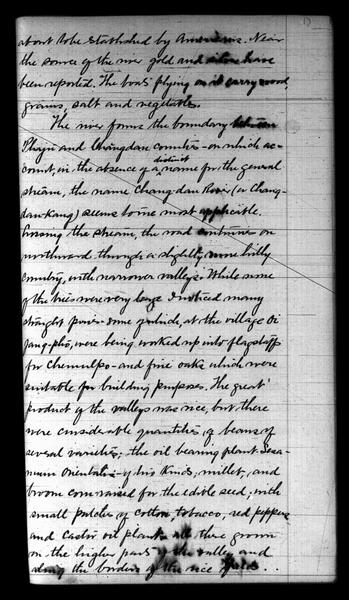 about to be established by Americans. Near
the source of the river gold and silver have
been reported. The boats plying on it carry wood,
grains, salt and vegetables.
The river forms the boundary between
Phajū and Changdan counties - on which ac-
count, in the absence of a district name for the general
stream, the name Changdan River (or Chang-
dan Kang) seems to me most applicable.
Crossing the stream, the road continues on
northward through a slightly more hilly
country, with narrower valleys. While none
of the trees were very large I noticed many
straight pines - some of which, at the village
were being worked up into flagstaffs
for Chemulpo - and fine oaks which were
suitable for building purposes. The great
product of the valleys was rice, but there
were considerable quantities of beans of
several varieties; the oil bearing plant Sesa-
mum Orientalis - of two kinds, millet, and
broom corn raised for the edible seed; with
small patches of cotton, tobacco, red peppers
and castor oil plant all these grown
on the higher parts of the valley and
along the borders of the rice fields...